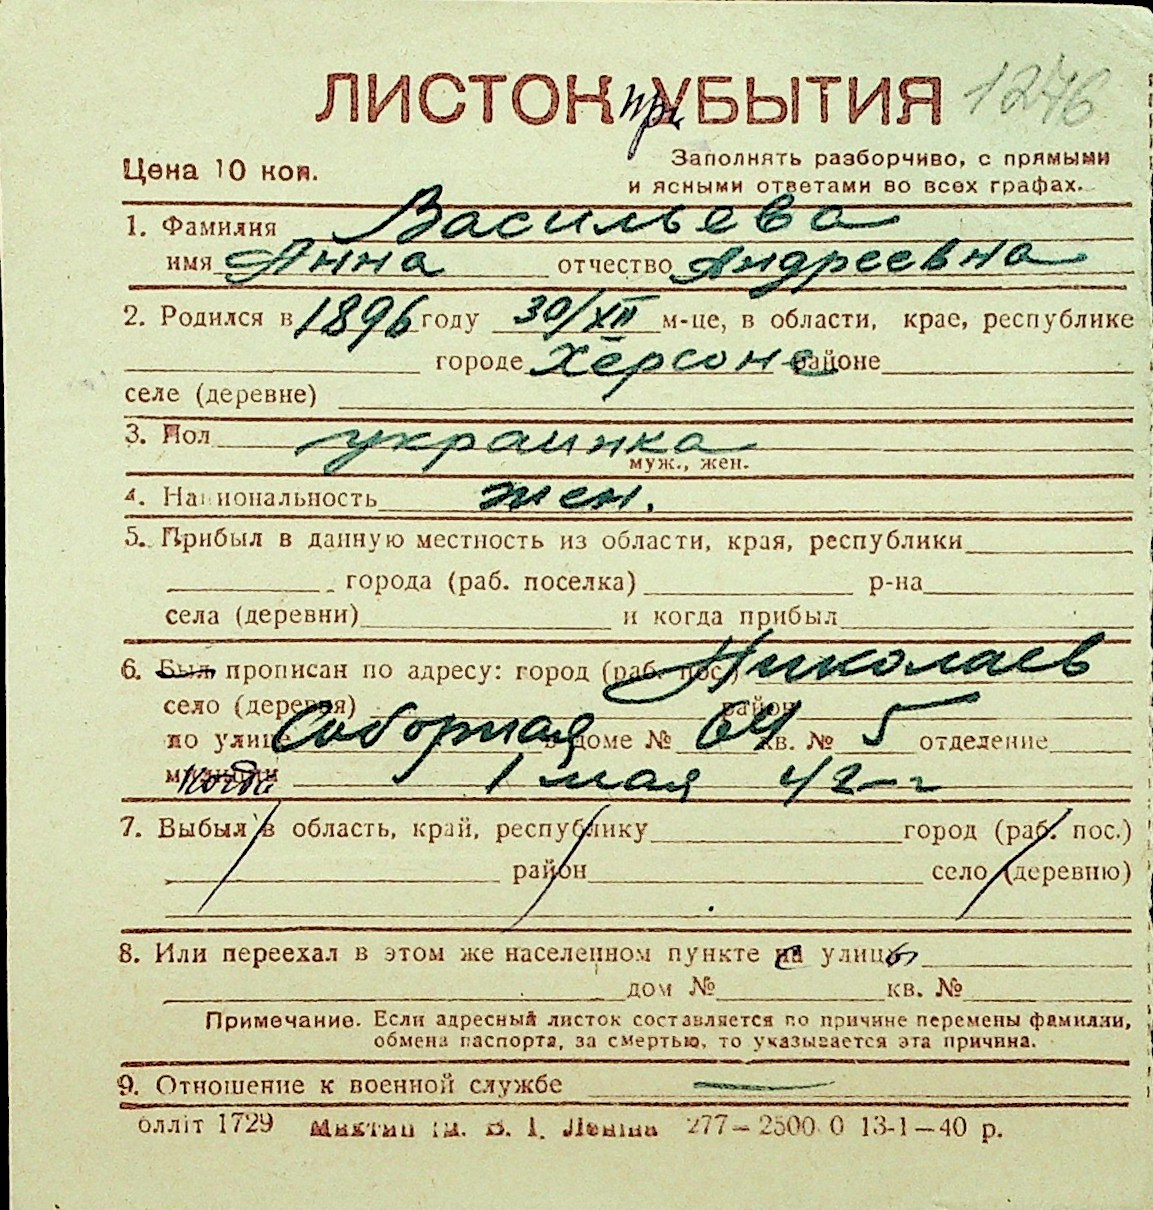 ЛИСТОК при УБЫТИЯ 1276
Цена 10 коп.
Заполнять разборчиво, с прямыми
и ясными ответами во всех графах.
1. Фамилия Васильева
имя Анна отчество Андреевна
2. Родился в 1896 году 30/XII м-це, в области, крае, республике
городе Херсоне районе
селе (деревне)
3. Пол украинка
муж., жен.
4. Национальность жен.
5. Прибыл в данную местность из области, края, республики
города (раб. поселка) р-на
села (деревни) и когда прибыл
6. Был прописан по адресу: город (раб. пос.) Николаев
село (деревня) район
по улице Соборная в доме № 64 кв. № 5 отделение
милиции когда 1 мая 42 г
7. Выбыл в область, край, республику город (раб. пос.)
район село (деревню)
8. Или переехал в этом же населенном пункте с улицы
дом № кв. №
Примечание. Если адресный листок составляется по причине перемены фамилии,
обмена паспорта, за смертью, то указывается эта причина.
9. Отношение к военной службе —
олліт 1729 ім. В. І. Леніна 277—2500 0 13-1—40 р.